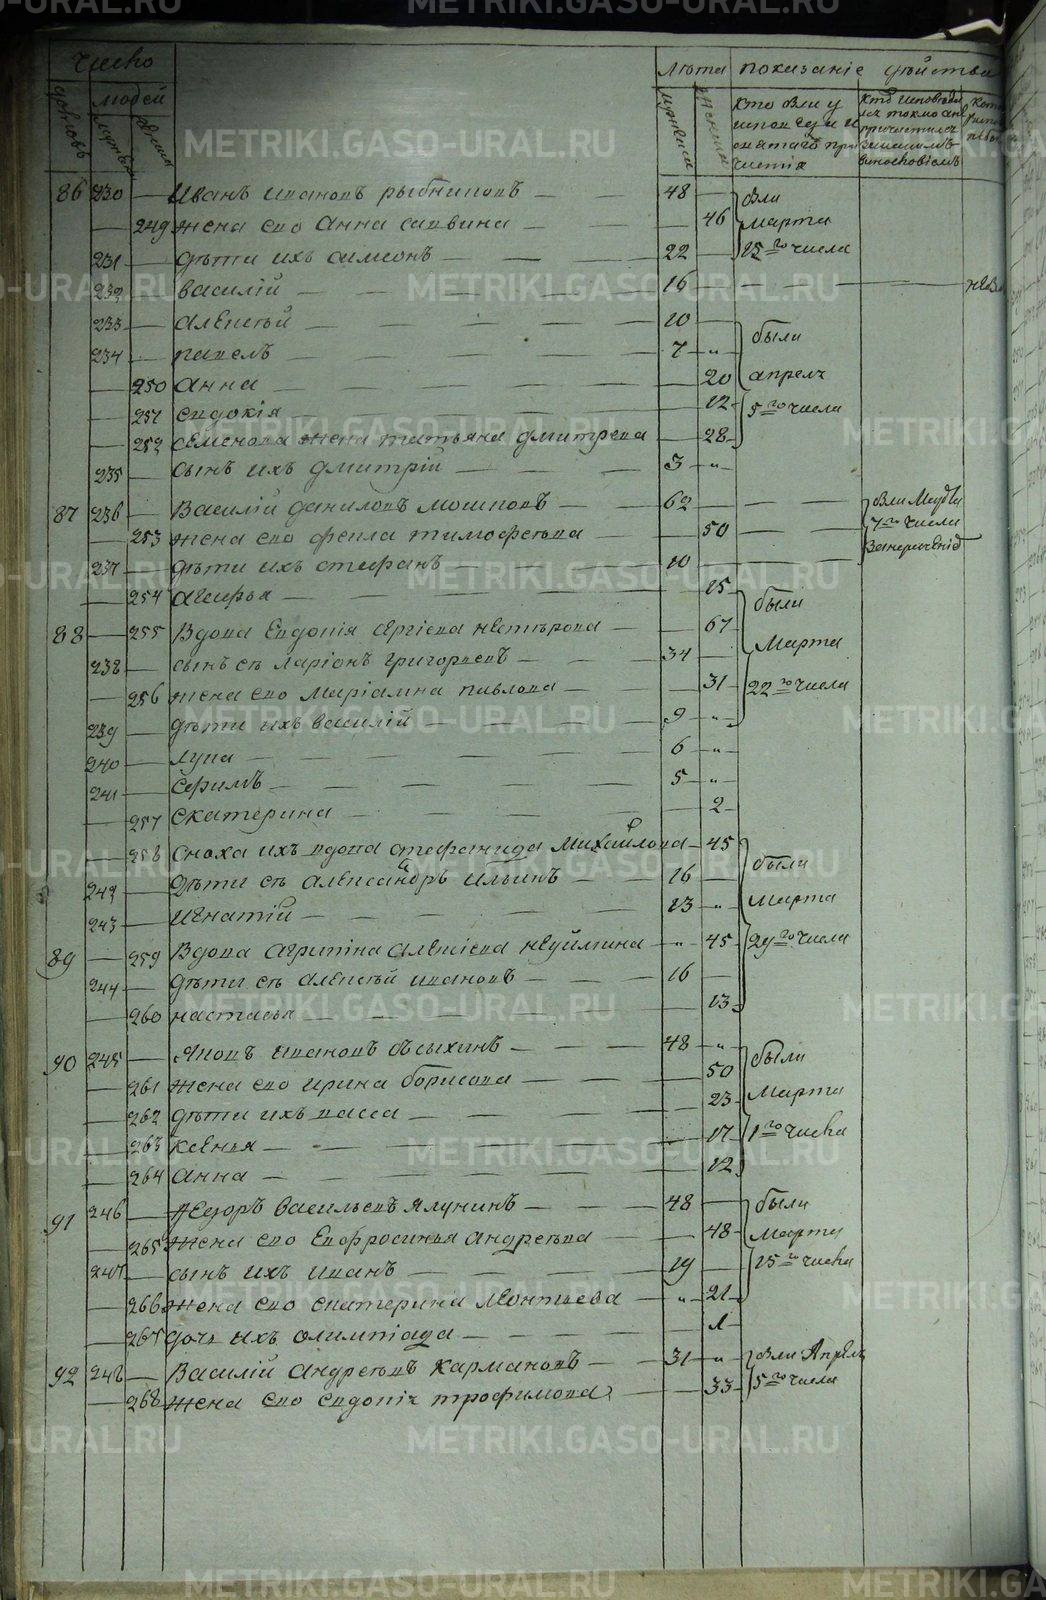 число
лѣта показанiе дѣйства
домовъ людей
мужеска
кто были у исповѣди и святаго причастiя
86 230 — Иванъ ивановъ рыбниковъ — 48 — были
— 249 жена ево Анна саввина — — 46 марта
231 — дѣти ихъ симеонъ — 22 — 15го числа
232 — василiй — 16 —
233 — алексѣй — 10 были
234 — павелъ — 7 — „
— 250 анна — 20 апреля
— 251 евдокiя — 12 5го числа
— 252 семенова жена татьяна дмитрева — 28
235 — сынъ ихъ дмитрiй — 3 — „
87 236 — Василiй даниловъ мошковъ — 62 —
— 253 жена ево фекла тимофѣева — 50 — 7го числа
237 — дѣти ихъ стефанъ — 10 —
— 254 агафья — 15 были
88 — 255 Вдова Евдокiя сергiева — 67 Марта
238 — сынъ еѣ ларiонъ григорьевъ — 34 —
— 256 жена ево марiамна павлова — 31 22го числа
239 — дѣти ихъ василiй — 9 — „
240 — лука — 6 — „
241 — ефимъ — 5 — „
— 257 екатерина — 2
— 258 сноха ихъ вдова стефанида Михайлова — 45
242 — дѣти еѣ александръ ильинъ — 16 — были
243 — игнатiй — 13 — „ марта
89 — 259 Вдова агрипина алексiева неуймина — „ 45 29го числа
244 — дѣти еѣ алексѣй ивановъ — 16 —
— 260 настасья — 13
90 245 — Яковъ ивановъ — 48 — „ были
— 261 жена ево ирина борисова — 50
— 262 дѣти ихъ васса — 23 марта
— 263 ксенья — 17 1го числа
— 264 анна — 12
91 246 — Ѳедоръ васильевъ ялунинъ — 48 — были
— 265 жена ево Евфросинья андреѣва — 48 марта
247 — сынъ ихъ иванъ — 19 — 15го числа
— 266 жена ево екатерина леонтьева — „ 21
— 267 дочь ихъ олимпiада — 1
92 248 — Василiй андреѣвъ кармановъ — 31 — „ были Апреля
— 268 жена ево евдокiя трофимова — 33 5го числа
METRIKI.GASO-URAL.RU